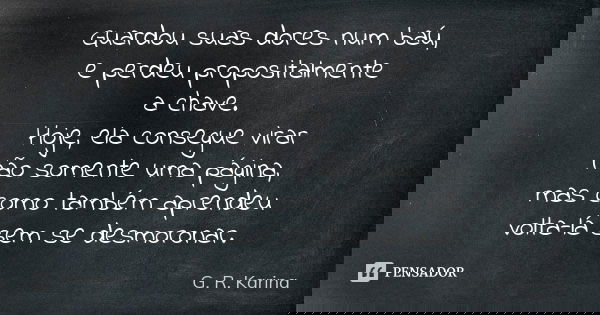 Guardou suas dores num baú,
e perdeu propositalmente
a chave.
Hoje, ela consegue virar
não somente uma página,
mas como também aprendeu
voltá-lá sem se desmoronar.
G. R. Karina
PENSADOR